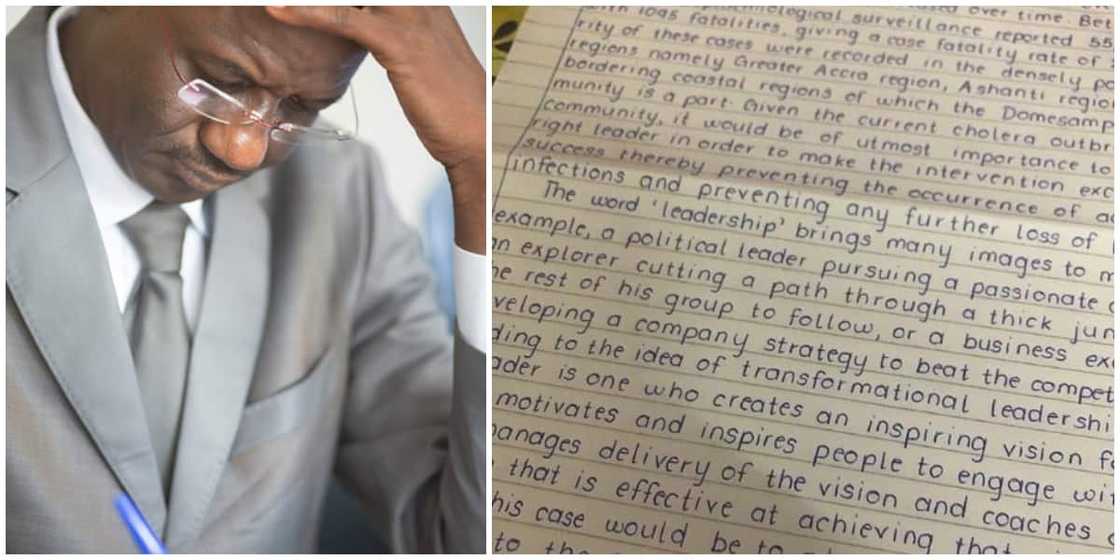 over time. Bet
surveillance reported 55
1095 fatalities, giving a case fatality rate of
rity of these cases were recorded in the densely po
regions namely Greater Accra region, Ashanti regio
bordering coastal regions of which the Domesamp
munity is a part. Given the current cholera outbr
community, it would be of utmost importance to
right leader in order to make the intervention exc
success thereby preventing the occurrence of a
infections and preventing any further loss of
The word 'leadership' brings many images to m
example, a political leader pursuing a passionate
n explorer cutting a path through a thick jun
he rest of his group to follow, or a business ex
veloping a company strategy to beat the compet
ding to the idea of transformational leadershi
ader is one who creates an inspiring vision f
motivates and inspires people to engage wi
anages delivery of the vision and coaches
that is effective at achieving that
his case would be to
to th